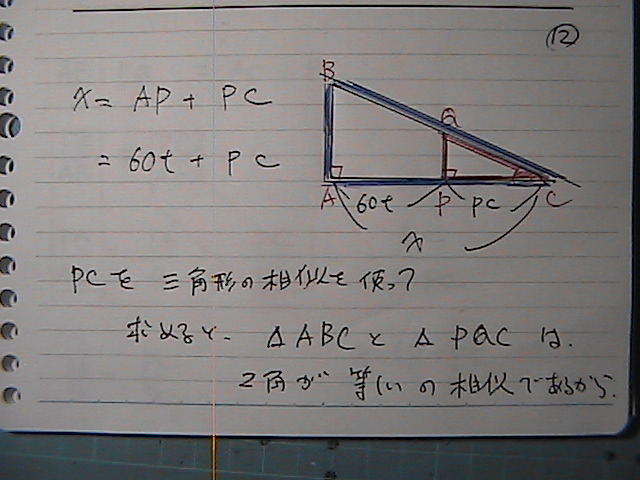 ⑫
x = AP + PC
= 60t + PC
B
Q
A 60t P PC C
x
PCを 三角形の相似を使って
求めると、 △ABCと △PQCは、
2角が 等しいの 相似であるから、